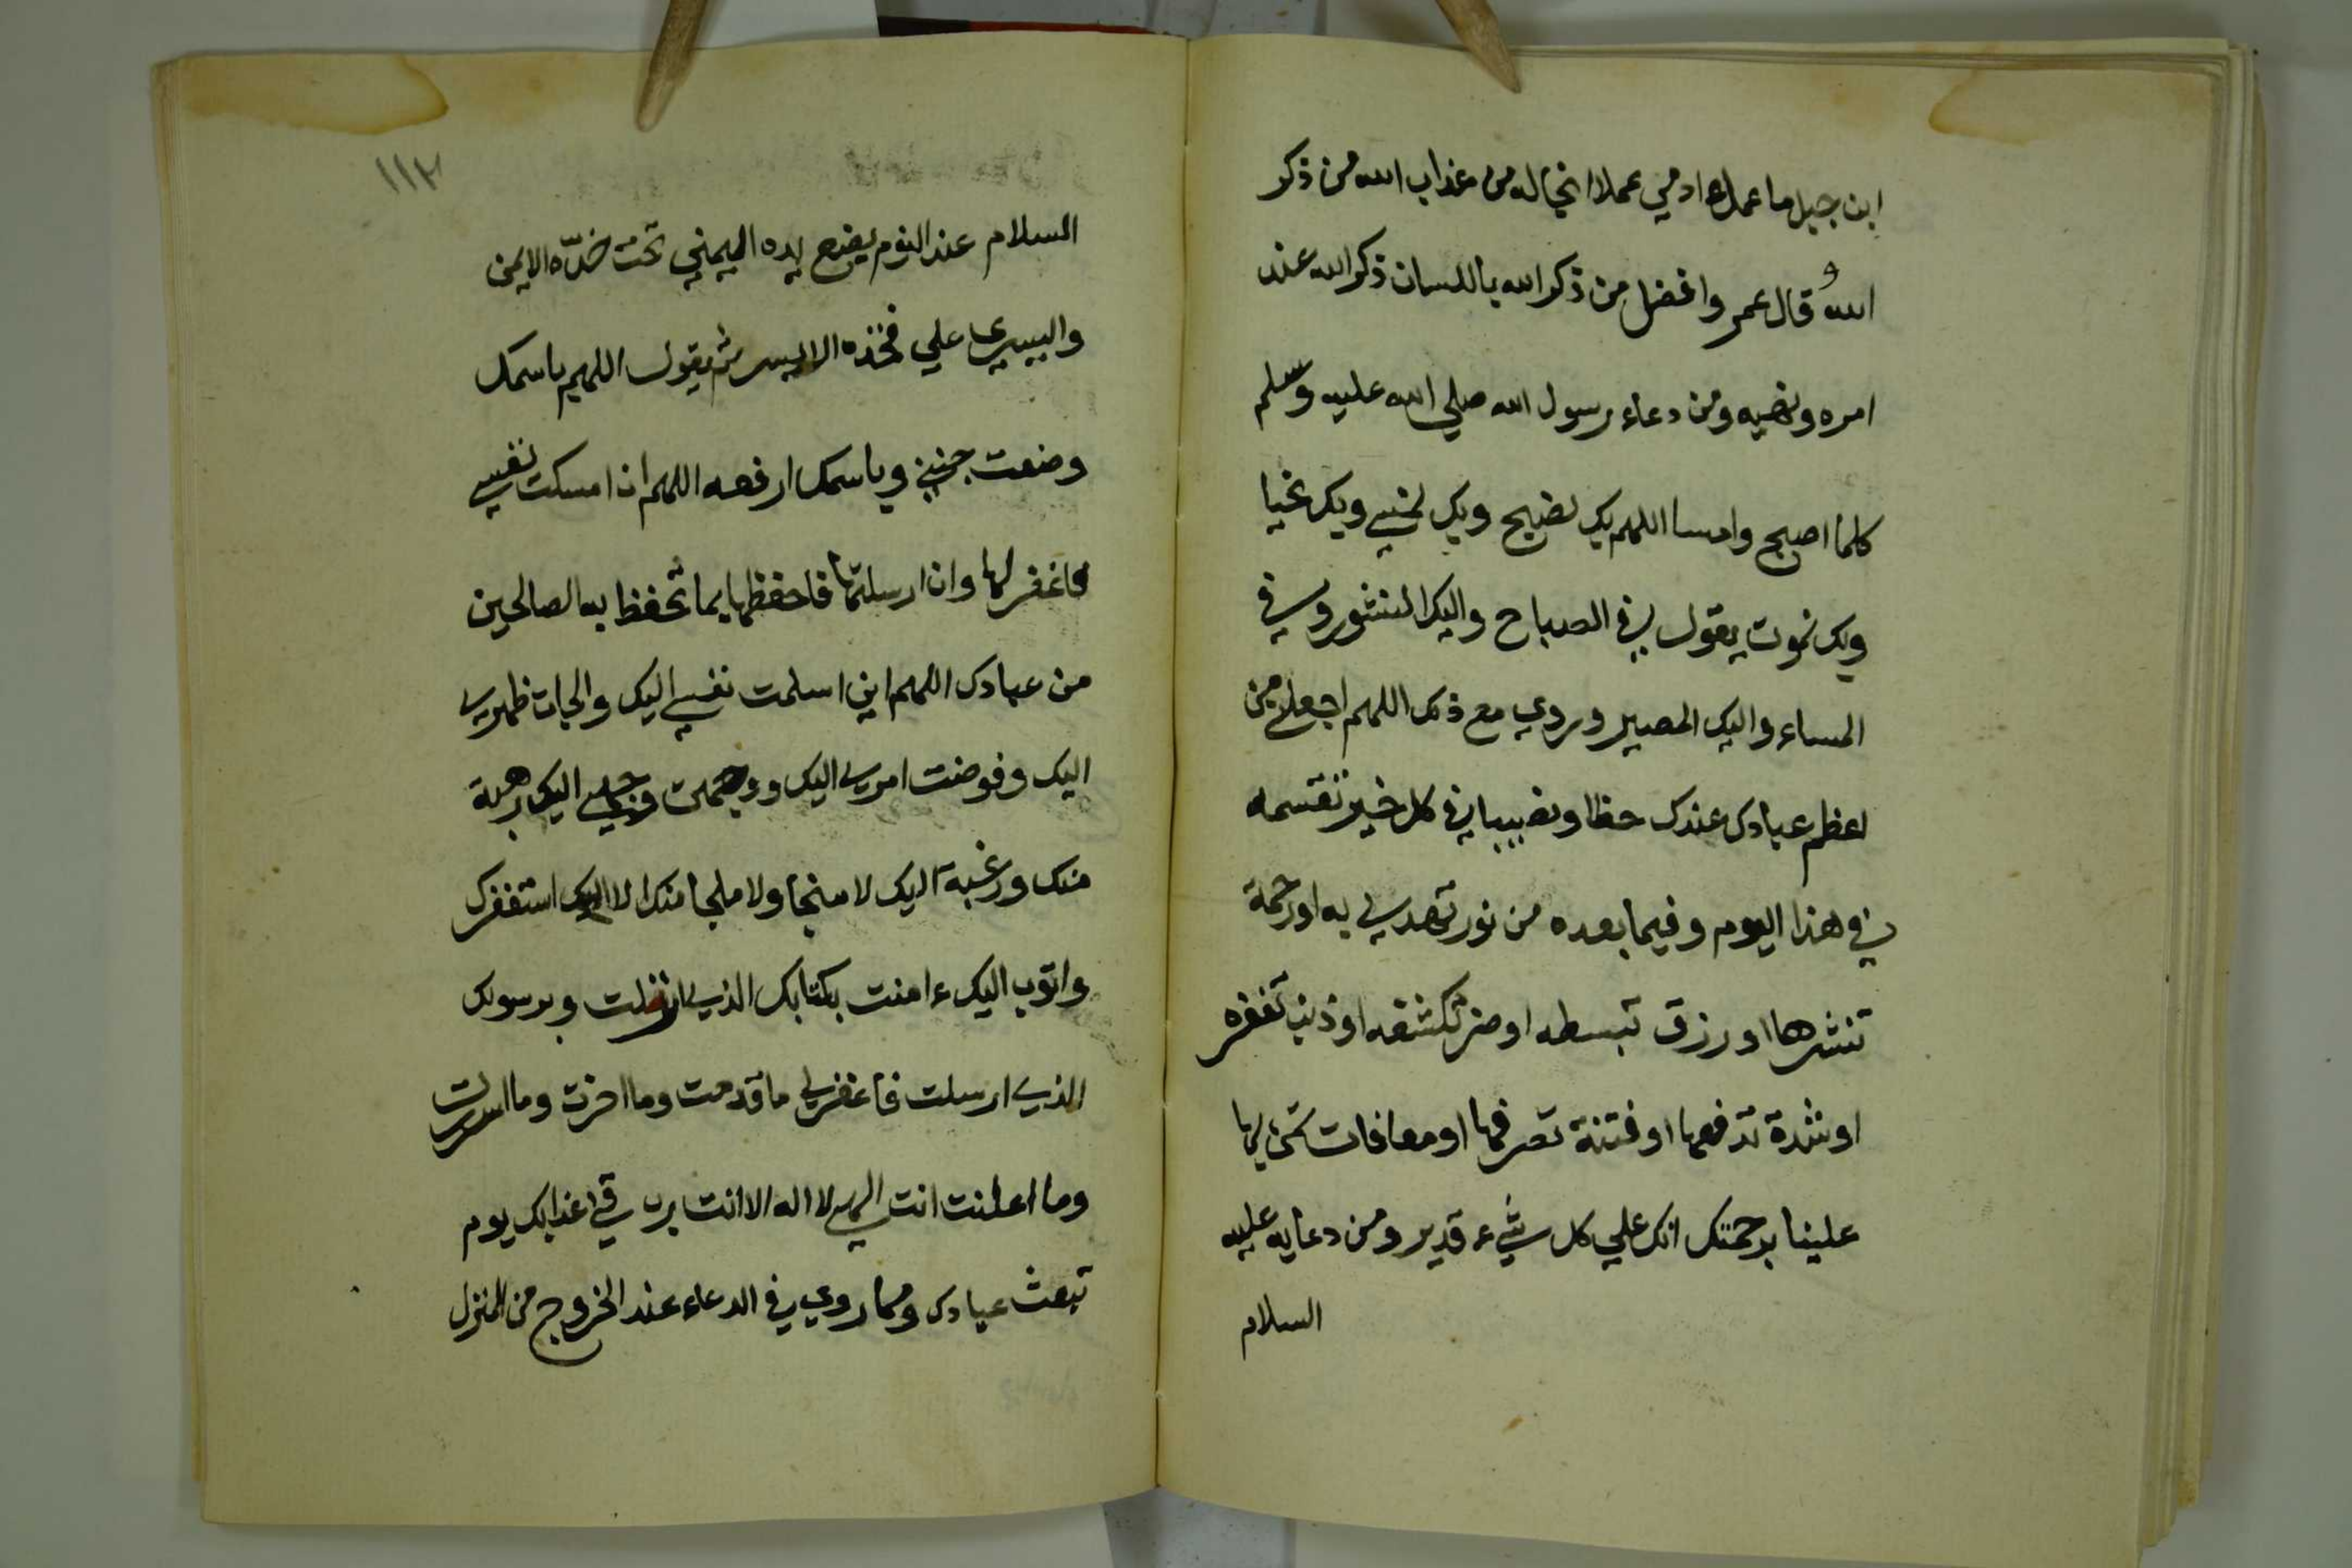 ابن جبل ما عمل ءادمي عملا انجا له من عذاب الله من ذكر
الله و قال عمر وافضل من ذكر الله باللسان ذكر الله عند
امره ونهيه ومن دعاء رسول الله صلي الله عليه وسلم
كلما اصبح وامسا اللهم بك نصبح وبك نمسي وبك نحيا
وبك نموت يقول في الصباح واليك النشور وفي
المساء واليك المصير وروي مع ذلك اللهم اجعلني من
اعظم عبادك عندك حظا ونصيبا في كل خير تقسمه
في هذا اليوم وفيما بعده من نور تهدي به او رحمة
تنشرها او رزق تبسطه او ضر تكشفه او ذنب تغفره
او شدة تدفعها او فتنة تصرفها او معافات تمن بها
علينا برحمتك انك علي كل شيء قدير ومن دعايه عليه
السلام
١١٢
السلام عند النوم يضع يده اليمني تحت خدّه الايمن
واليسري علي فخذه الايسر ثم يقول اللهم باسمك
وضعت جنبي وباسمك ارفعه اللهم ان امسكت نفسي
فاغفر لها وان ارسلتها فاحفظها بما تحفظ به الصالحين
من عبادك اللهم اني اسلمت نفسي اليك والجات ظهري
اليك وفوضت امري اليك ووجهت وجهي اليك رهبة
منك ورغبة اليك لا منجا ولا ملجا منك الا اليك استغفرك
واتوب اليك ءامنت بكتابك الذي انزلت وبرسولك
الذي ارسلت فاغفر لي ما قدمت وما اخرت وما اسررت
وما اعلنت انت الهي لا اله الا انت رب قني عذابك يوم
تبعث عبادك ومما روي في الدعاء عند الخروج من المنزل